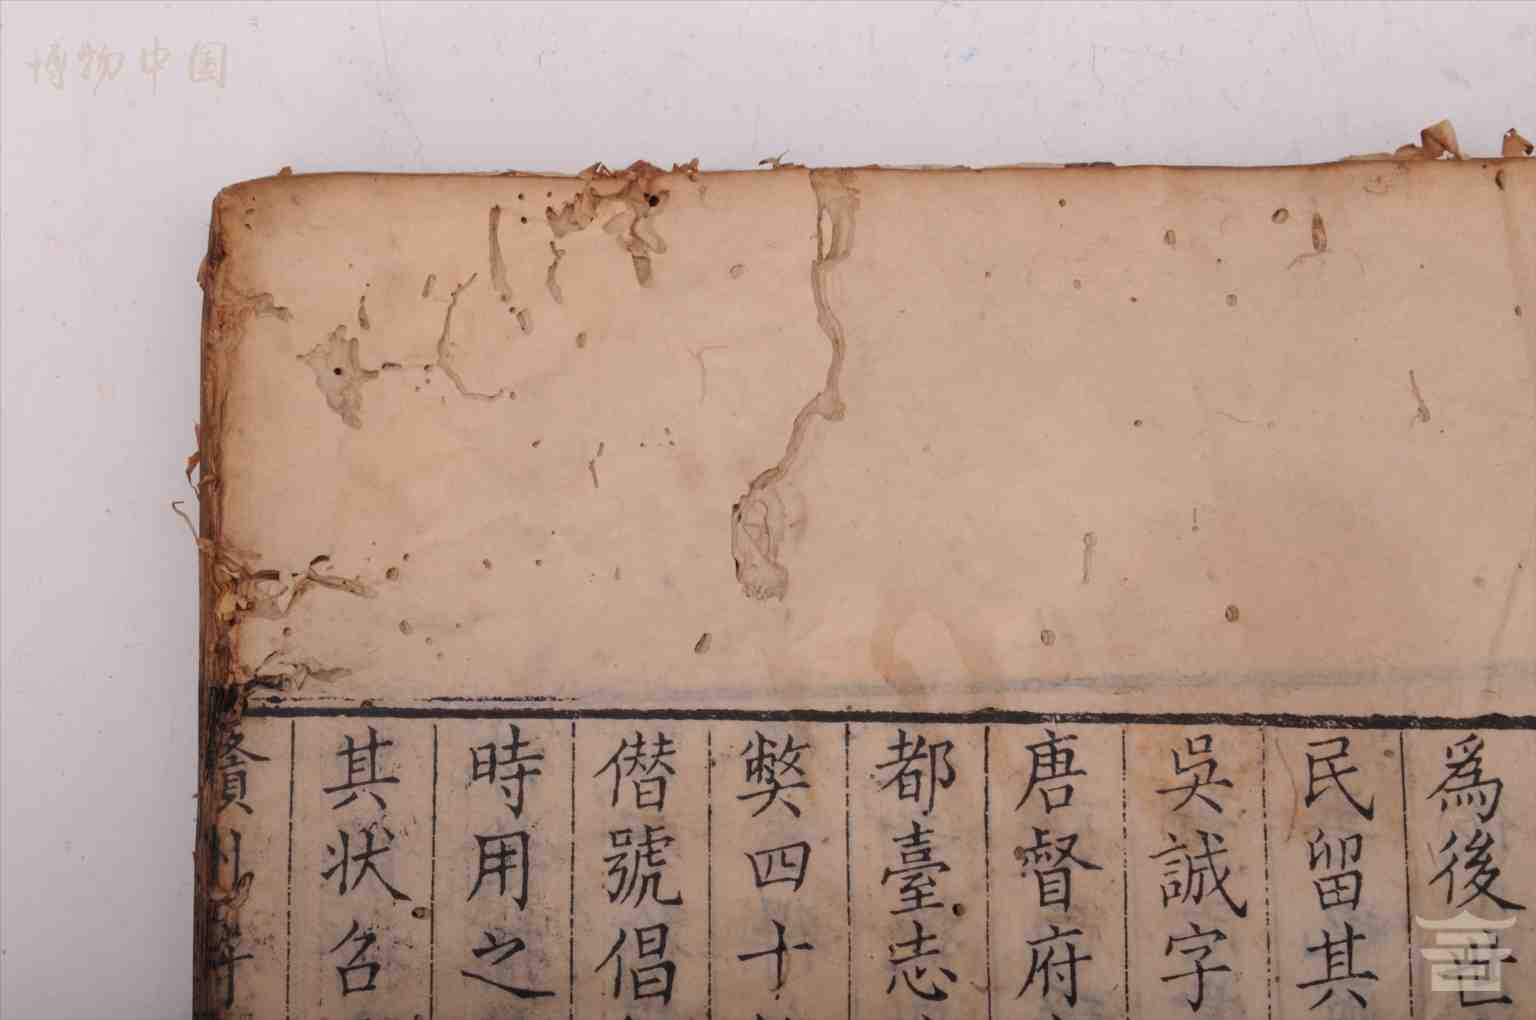 博物中国
爲後世
民留其
吳誠字
唐督府
都臺志
獘四十
僭號倡
時用之
其状召